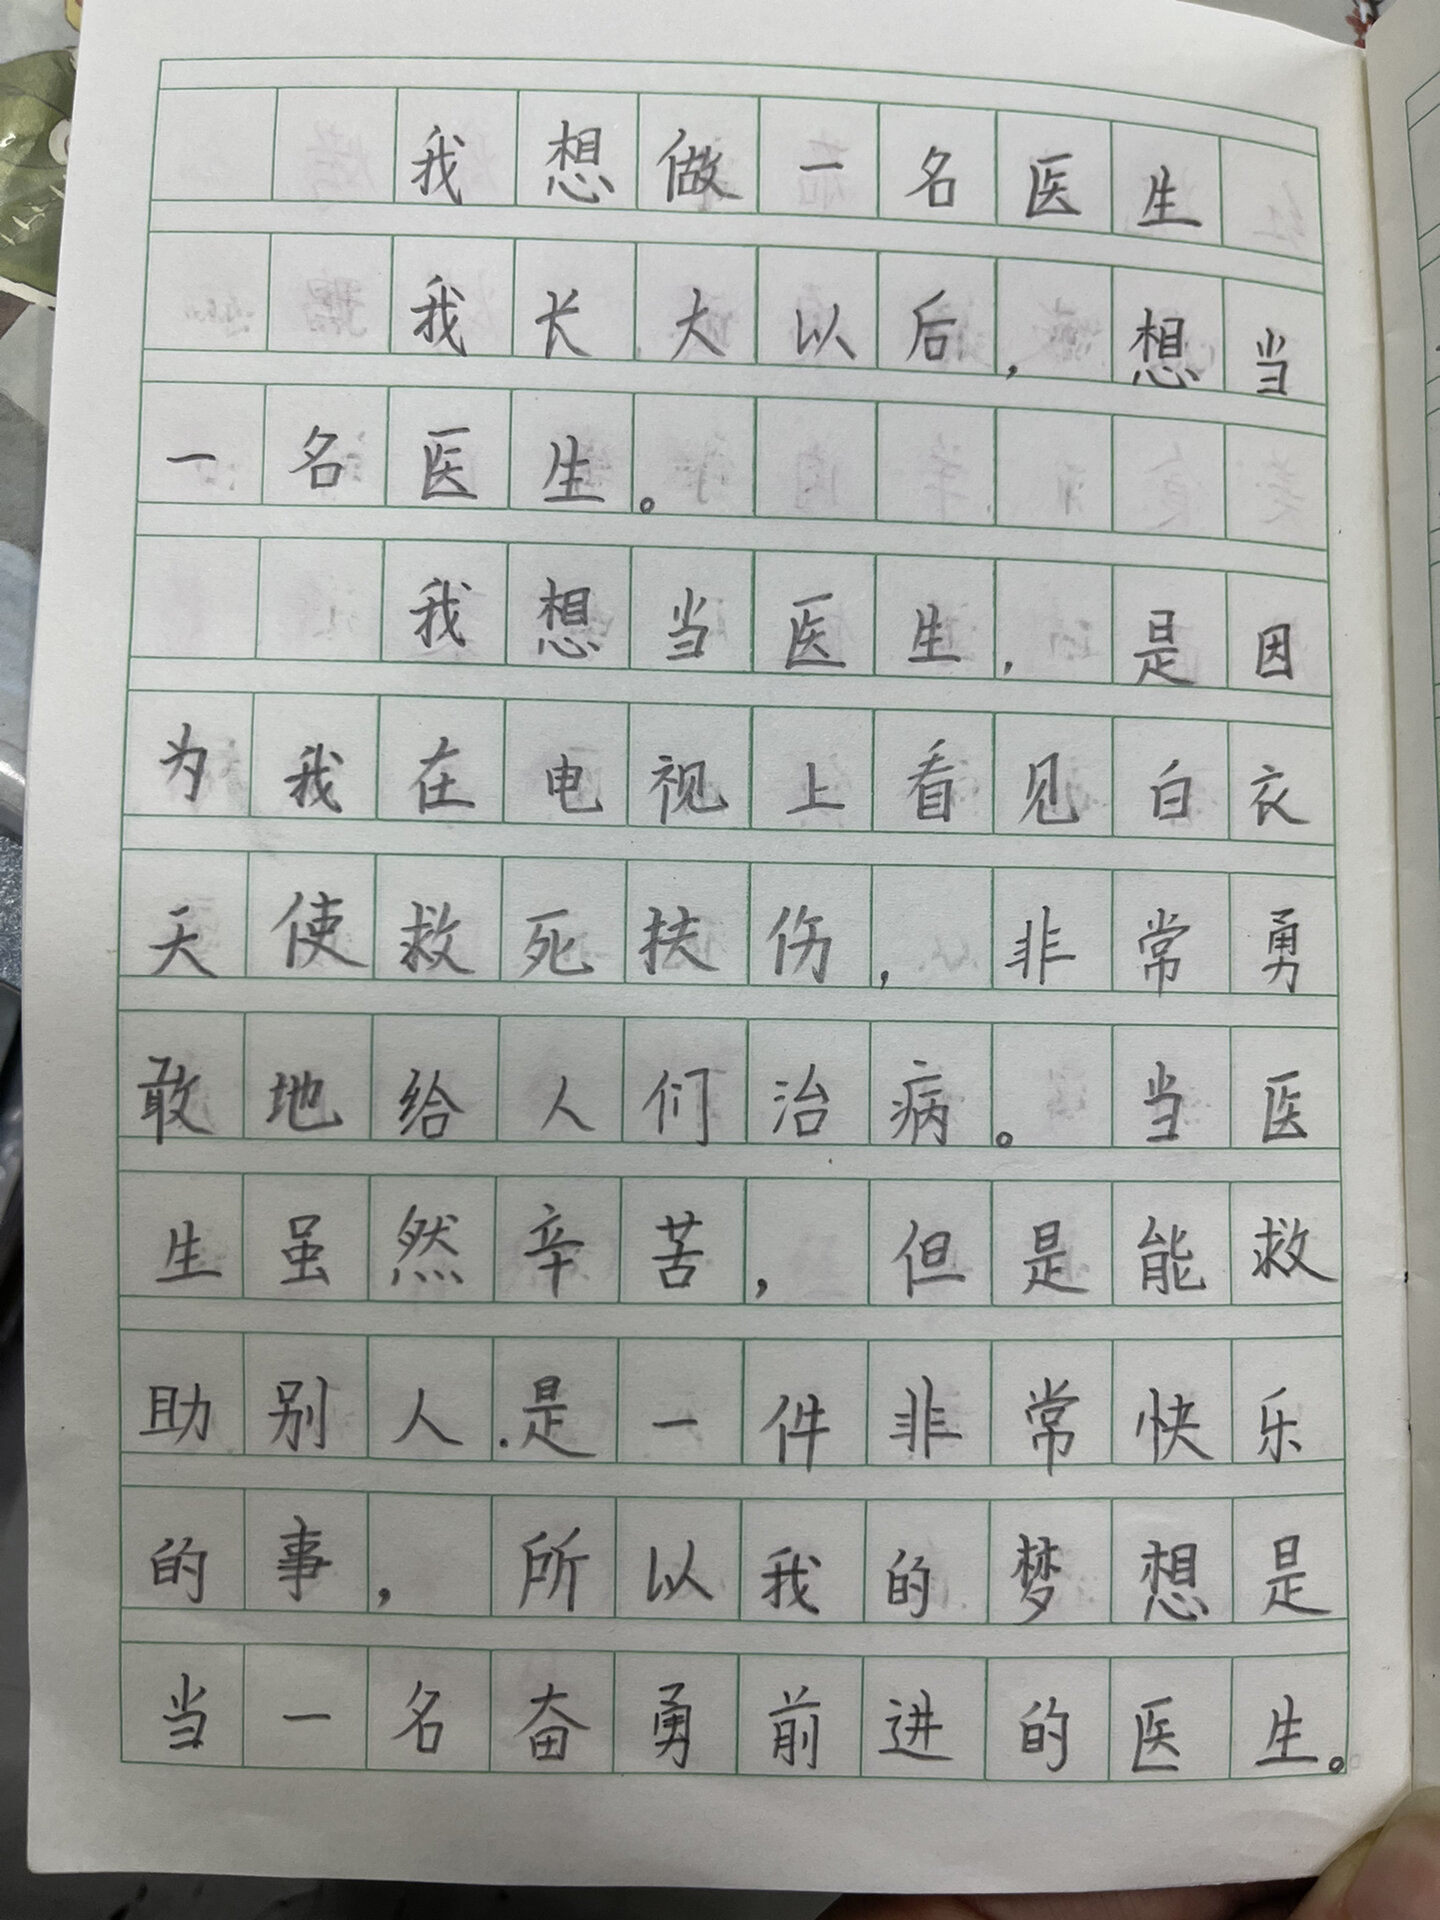 我想做一名医生
我长大以后，想当
一名医生。
我想当医生，是因
为我在电视上看见白衣
天使救死扶伤，非常勇
敢地给人们治病。当医
生虽然辛苦，但是能救
助别人是一件非常快乐
的事，所以我的梦想是
当一名奋勇前进的医生。